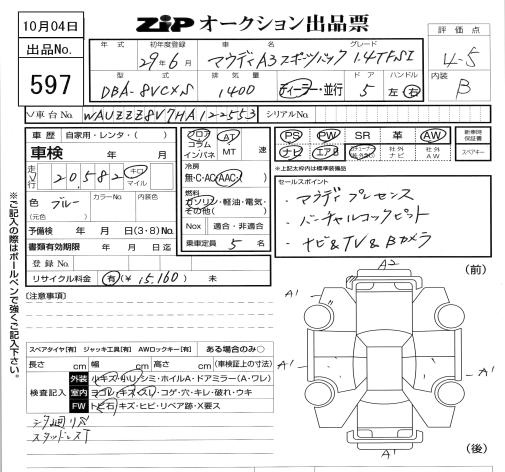 10月04日
ZIP オークション出品票
出品No.
597
年式
初年度登録
車名
グレード
29年6月
アウディA3スポーツバック 1.4TFSI
型式
排気量
ドア
ハンドル
DBA-8VCXS
1400
ディーラー・並行
5
左・右
評価点
4.5
内装
B
車台No.
WAUZZZ8V7HA122553
シリアルNo.
車歴 自家用・レンタ・( )
車検 年 月
走行 20,582 キロ マイル
色 ブルー
(元色)
カラーNo.
内装色
予備検 年 月 日(3・8)No.
書類有効期限 年 月 日迄
登録No.
リサイクル料金 有(¥15,160) 未
フロア コラム インパネ
AT MT 速
冷房
無・C・AC・AAC
燃料
ガソリン・軽油・電気・その他( )
Nox 適合・非適合
乗車定員 5 名
PS PW SR 革 AW
ナビ エアB
社外ナビ
社外AW
新車時保証書
スペアキー
*上記太枠内は標準装備品
セールスポイント
・アウディプレセンス
・バーチャルコックピット
・ナビ&TV&Bカメラ
※ご記入の際はボールペンで強くご記入下さい。
[注意事項]
スペアタイヤ[有] ジャッキ工具[有] AWロックキー[有] ある場合のみ○
長さ cm 幅 cm 高さ cm (車検証上の寸法)
検査記入
外装 小キズ・小凹・シミ・ホイルA・ドアミラー(A・ワレ)
室内 ヨゴレ・キズ・スレ・コゲ・穴・キレ・破れ・ウキ
FW トビ石・キズ・ヒビ・リペア跡・X要ス
スタッドレスT
(前)
A2
A'
A'
A'
A'
A'
(後)